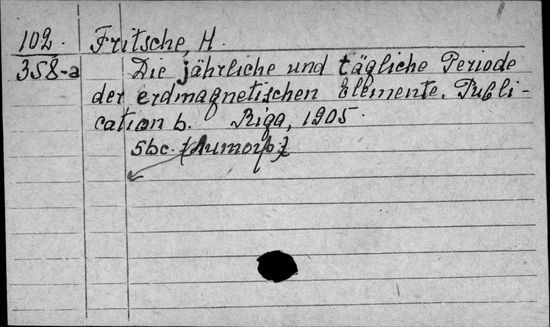 102. Fritsche, H.
358-a Die jährliche und tägliche Periode
der erdmagnetischen Elemente. Publi-
cation b. Riga, 1905.